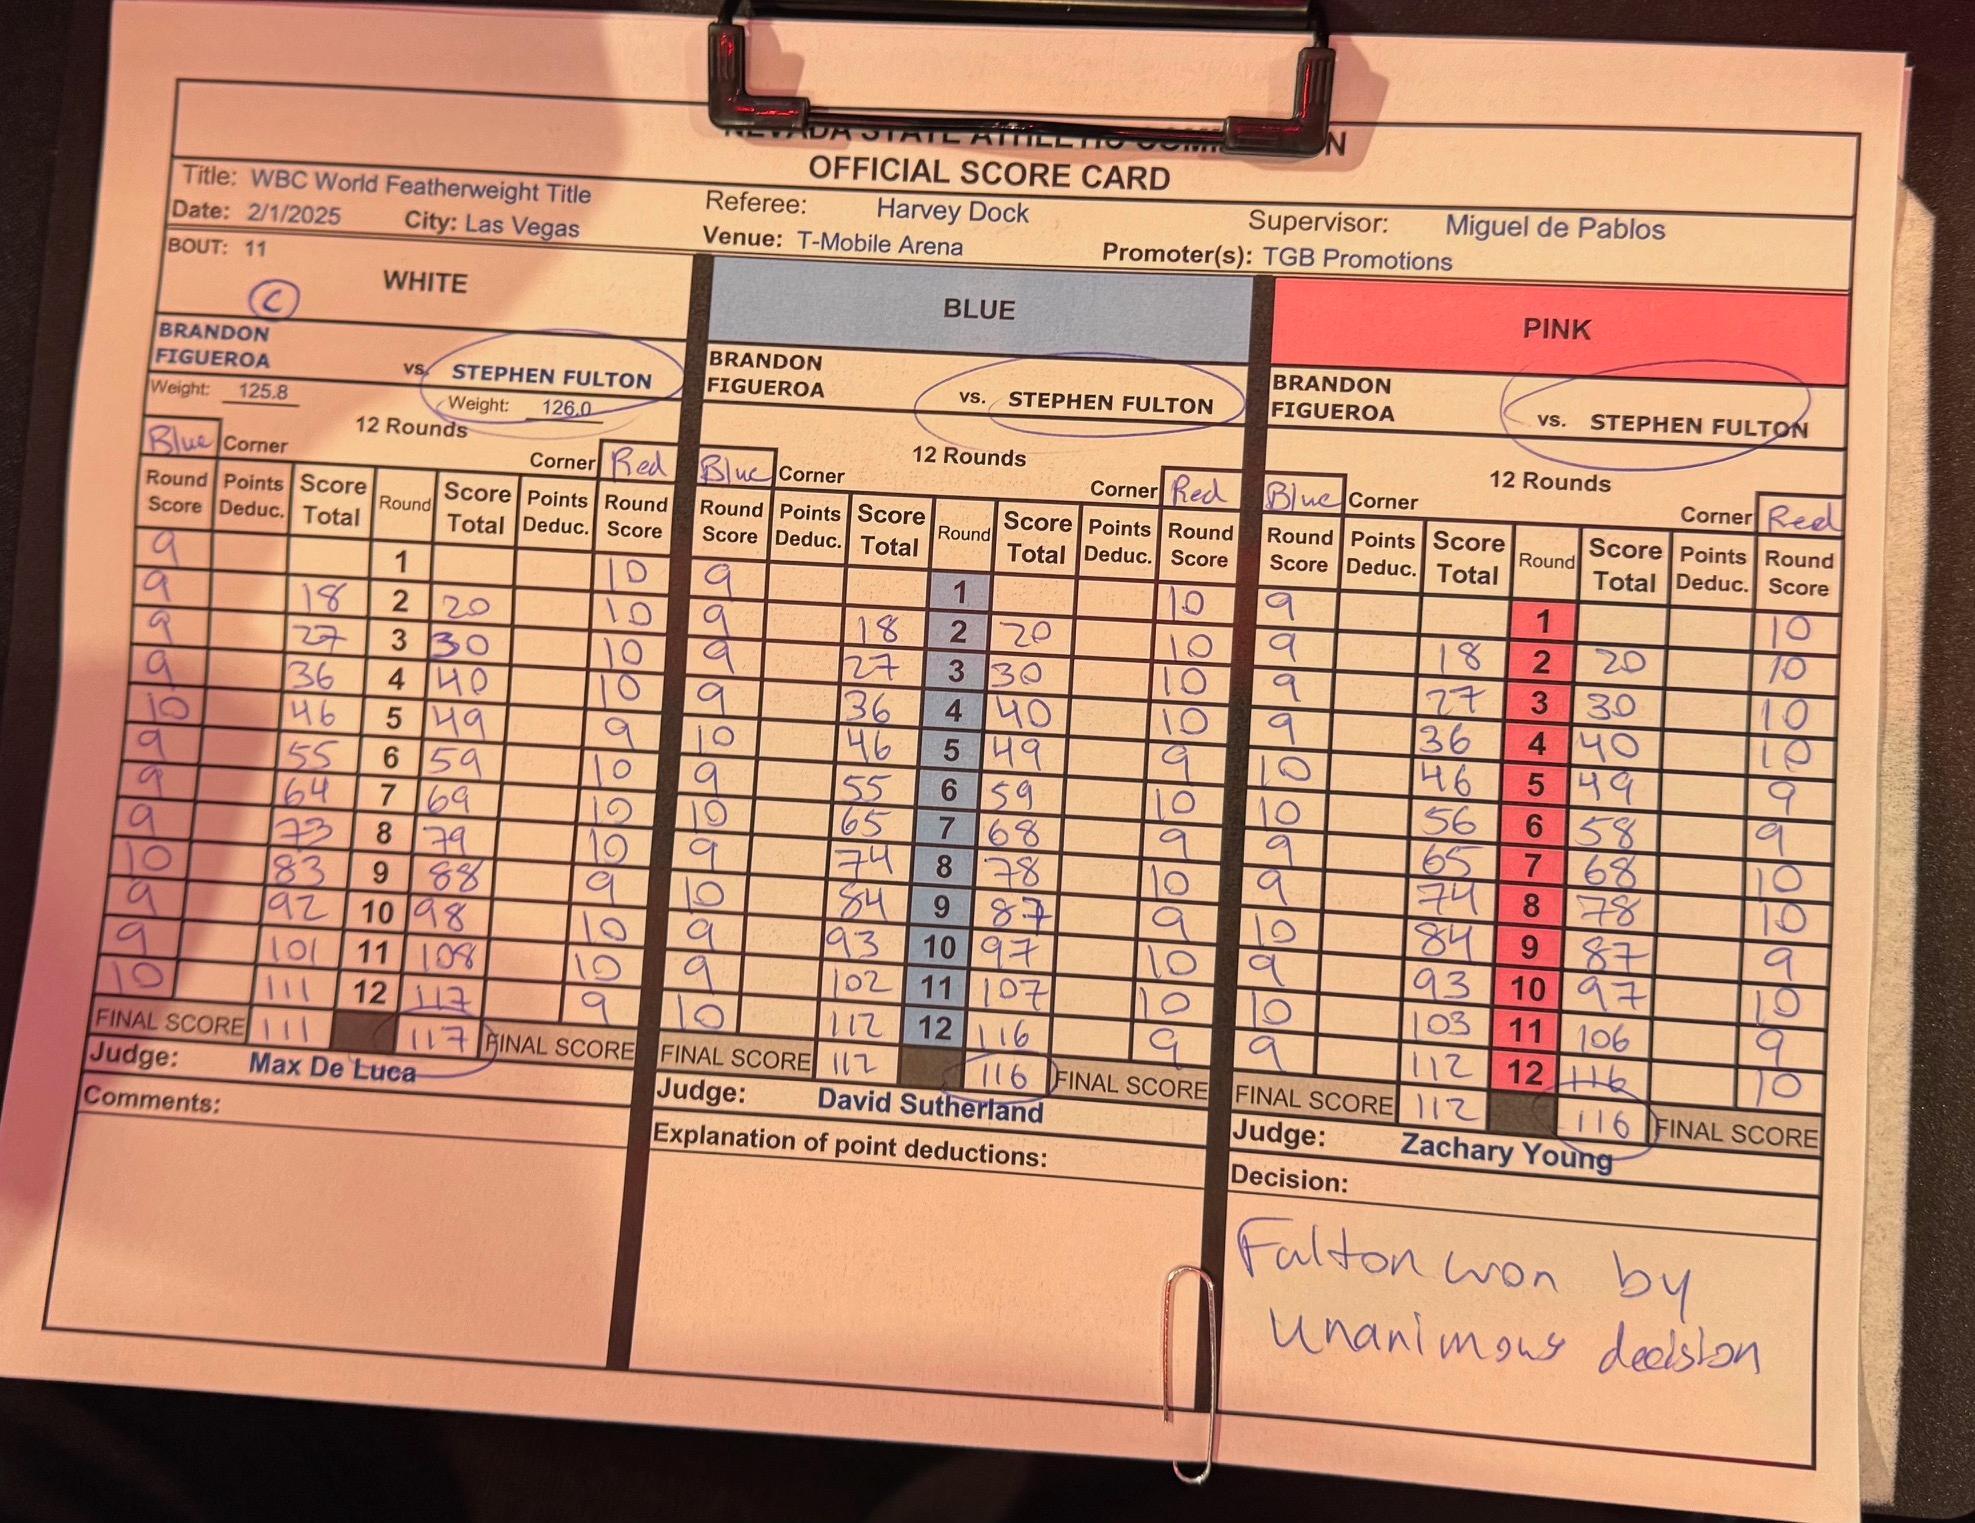 NEVADA STATE ATHLETIC
OFFICIAL SCORE CARD
Title: WBC World Featherweight Title Referee: Harvey Dock Supervisor: Miguel de Pablos
Date: 2/1/2025 City: Las Vegas Venue: T-Mobile Arena Promoter(s): TGB Promotions
BOUT: 11
WHITE
C
BRANDON
FIGUEROA vs. STEPHEN FULTON
Weight: 125.8 Weight: 126.0
12 Rounds
Blue Corner Corner Red
Round Score Points Deduc. Score Total Round Score Total Points Deduc. Round Score
9 1 10
9 18 2 20 10
9 27 3 30 10
9 36 4 40 10
10 46 5 49 9
9 55 6 59 10
9 64 7 69 10
9 73 8 79 10
10 83 9 88 9
9 92 10 98 10
9 101 11 108 10
10 111 12 117 9
FINAL SCORE 111 117 FINAL SCORE
Judge: Max De Luca
Comments:
BLUE
BRANDON
FIGUEROA vs. STEPHEN FULTON
12 Rounds
Blue Corner Corner Red
Round Score Points Deduc. Score Total Round Score Total Points Deduc. Round Score
9 1 10
9 18 2 20 10
9 27 3 30 10
9 36 4 40 10
10 46 5 49 9
9 55 6 59 10
10 65 7 68 9
9 74 8 78 10
10 84 9 87 9
9 93 10 97 10
9 102 11 107 10
10 112 12 116 9
FINAL SCORE 112 116 FINAL SCORE
Judge: David Sutherland
Explanation of point deductions:
PINK
BRANDON
FIGUEROA vs. STEPHEN FULTON
12 Rounds
Blue Corner Corner Red
Round Score Points Deduc. Score Total Round Score Total Points Deduc. Round Score
9 1 10
9 18 2 20 10
9 27 3 30 10
9 36 4 40 10
10 46 5 49 9
10 56 6 58 9
9 65 7 68 10
9 74 8 78 10
10 84 9 87 9
9 93 10 97 10
10 103 11 106 9
9 112 12 116 10
FINAL SCORE 112 116 FINAL SCORE
Judge: Zachary Young
Decision:
Fulton won by
Unanimous decision